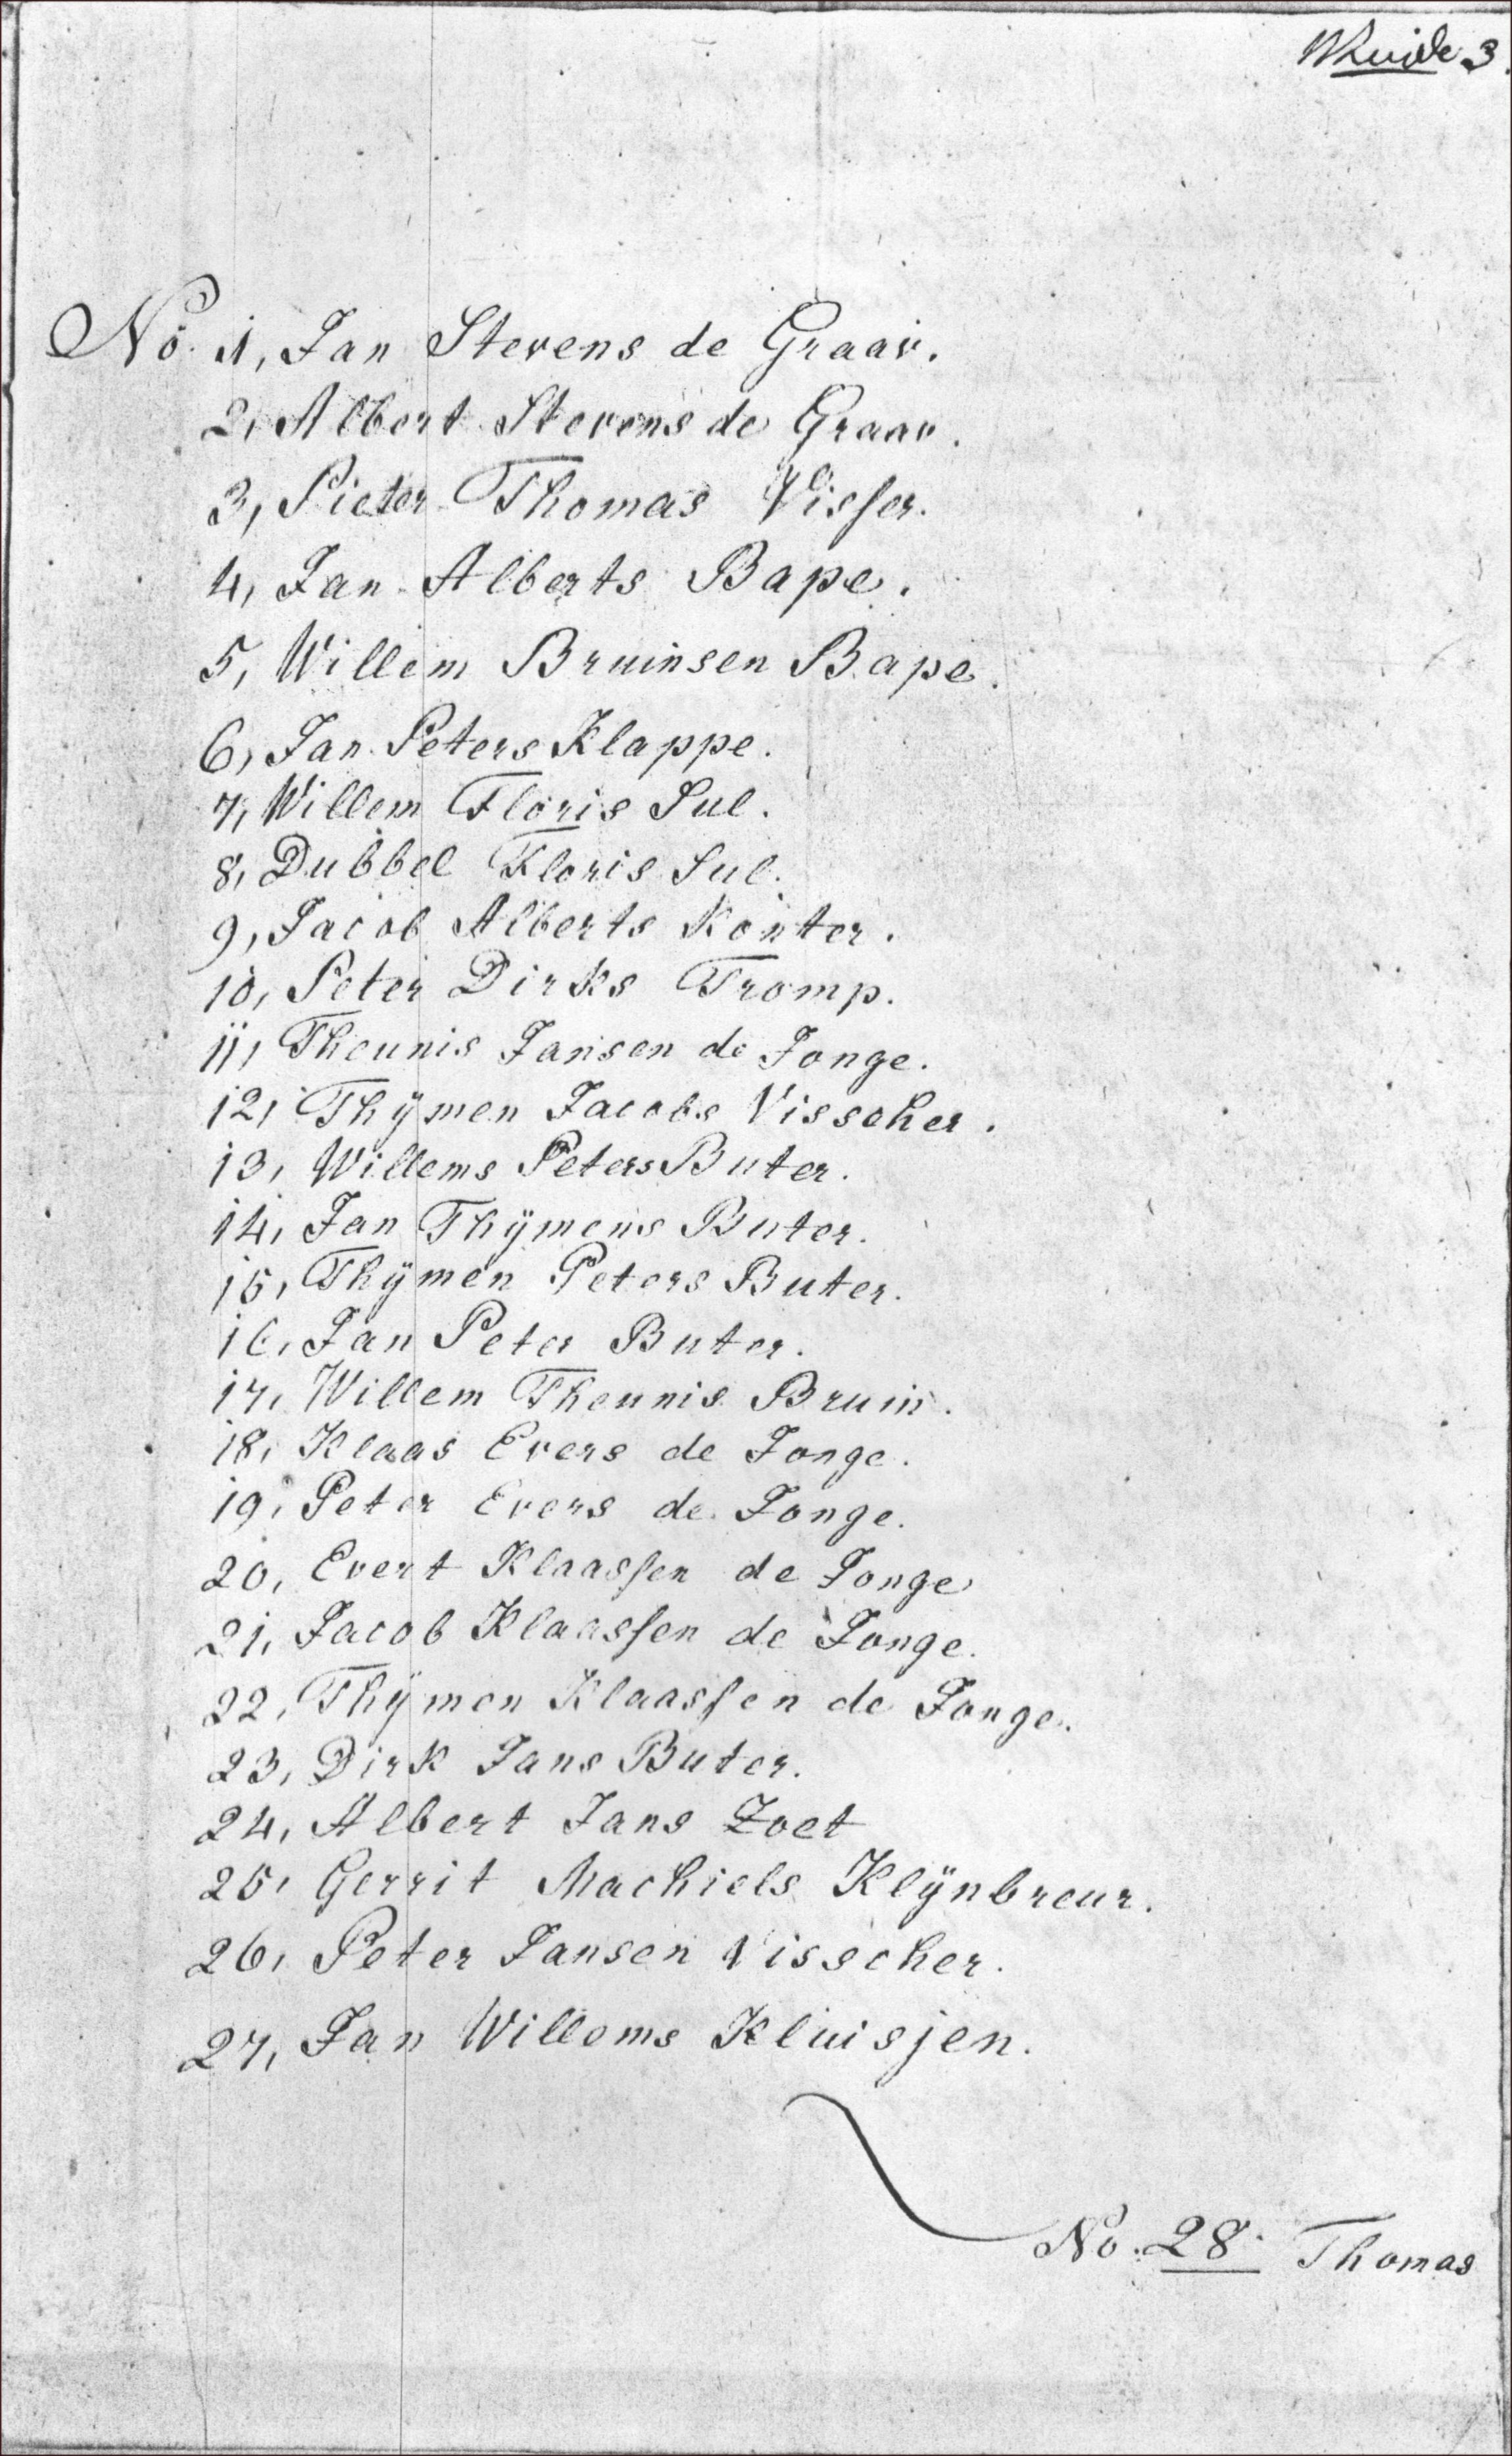 Kuide 3
No. 1, Jan Stevens de Graav.
2, Albert Stevens de Graav.
3, Pieter Thomas Visser.
4, Jan Alberts Bape.
5, Willem Bruinsen Bape.
6, Jan Peters Klappe.
7, Willem Floris Sul.
8, Dubbel Floris Sul.
9, Jacob Alberts Konter.
10, Peter Dirks Tromp.
11, Theunis Jansen de Jonge.
12, Thÿmen Jacobs Visscher.
13, Willems Peters Buter.
14, Jan Thÿmens Buter.
15, Thÿmen Peters Buter.
16, Jan Peter Buter.
17, Willem Theunis Bruin.
18, Klaas Evers de Jonge.
19, Peter Evers de Jonge.
20, Evert Klaassen de Jonge
21, Jacob Klaassen de Jonge.
22, Thÿmen Klaassen de Jonge.
23, Dirk Jans Buter.
24, Albert Jans Zoet
25, Gerrit Machiels Klÿnbreur.
26, Peter Jansen Visscher.
27, Jan Willems Kluisjen.
No. 28. Thomas